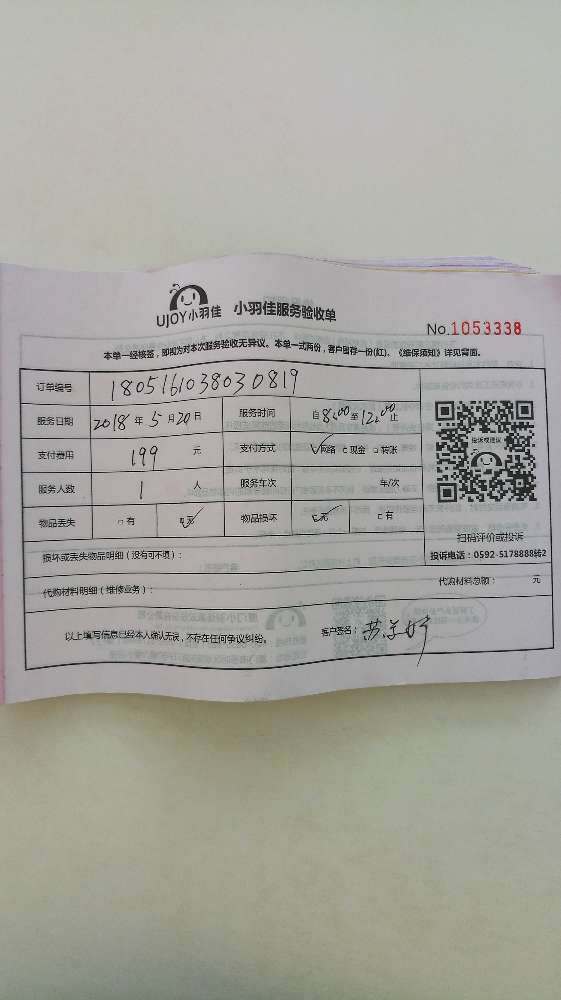 UJOY小羽佳 小羽佳服务验收单
No.1053338
本单一经核签，即视为对本次服务验收无异议。本单一式两份，客户留存一份(红)、《维保须知》详见背面。
订单编号 1805161038030819
服务日期 2018年5月20日 服务时间 自8:00至12:00止
支付费用 199 元 支付方式 ☑网络 □现金 □转账
投诉或建议
服务人数 1 人 服务车次 车/次
物品丢失 □有 ☑无 物品损坏 ☑无 □有
扫码评价或投诉
损坏或丢失物品明细（没有可不填）：
投诉电话：0592-5178888转2
代购材料明细（维修业务）： 代购材料总额： 元
以上填写信息已经本人确认无误，不存在任何争议纠纷。 客户签名：